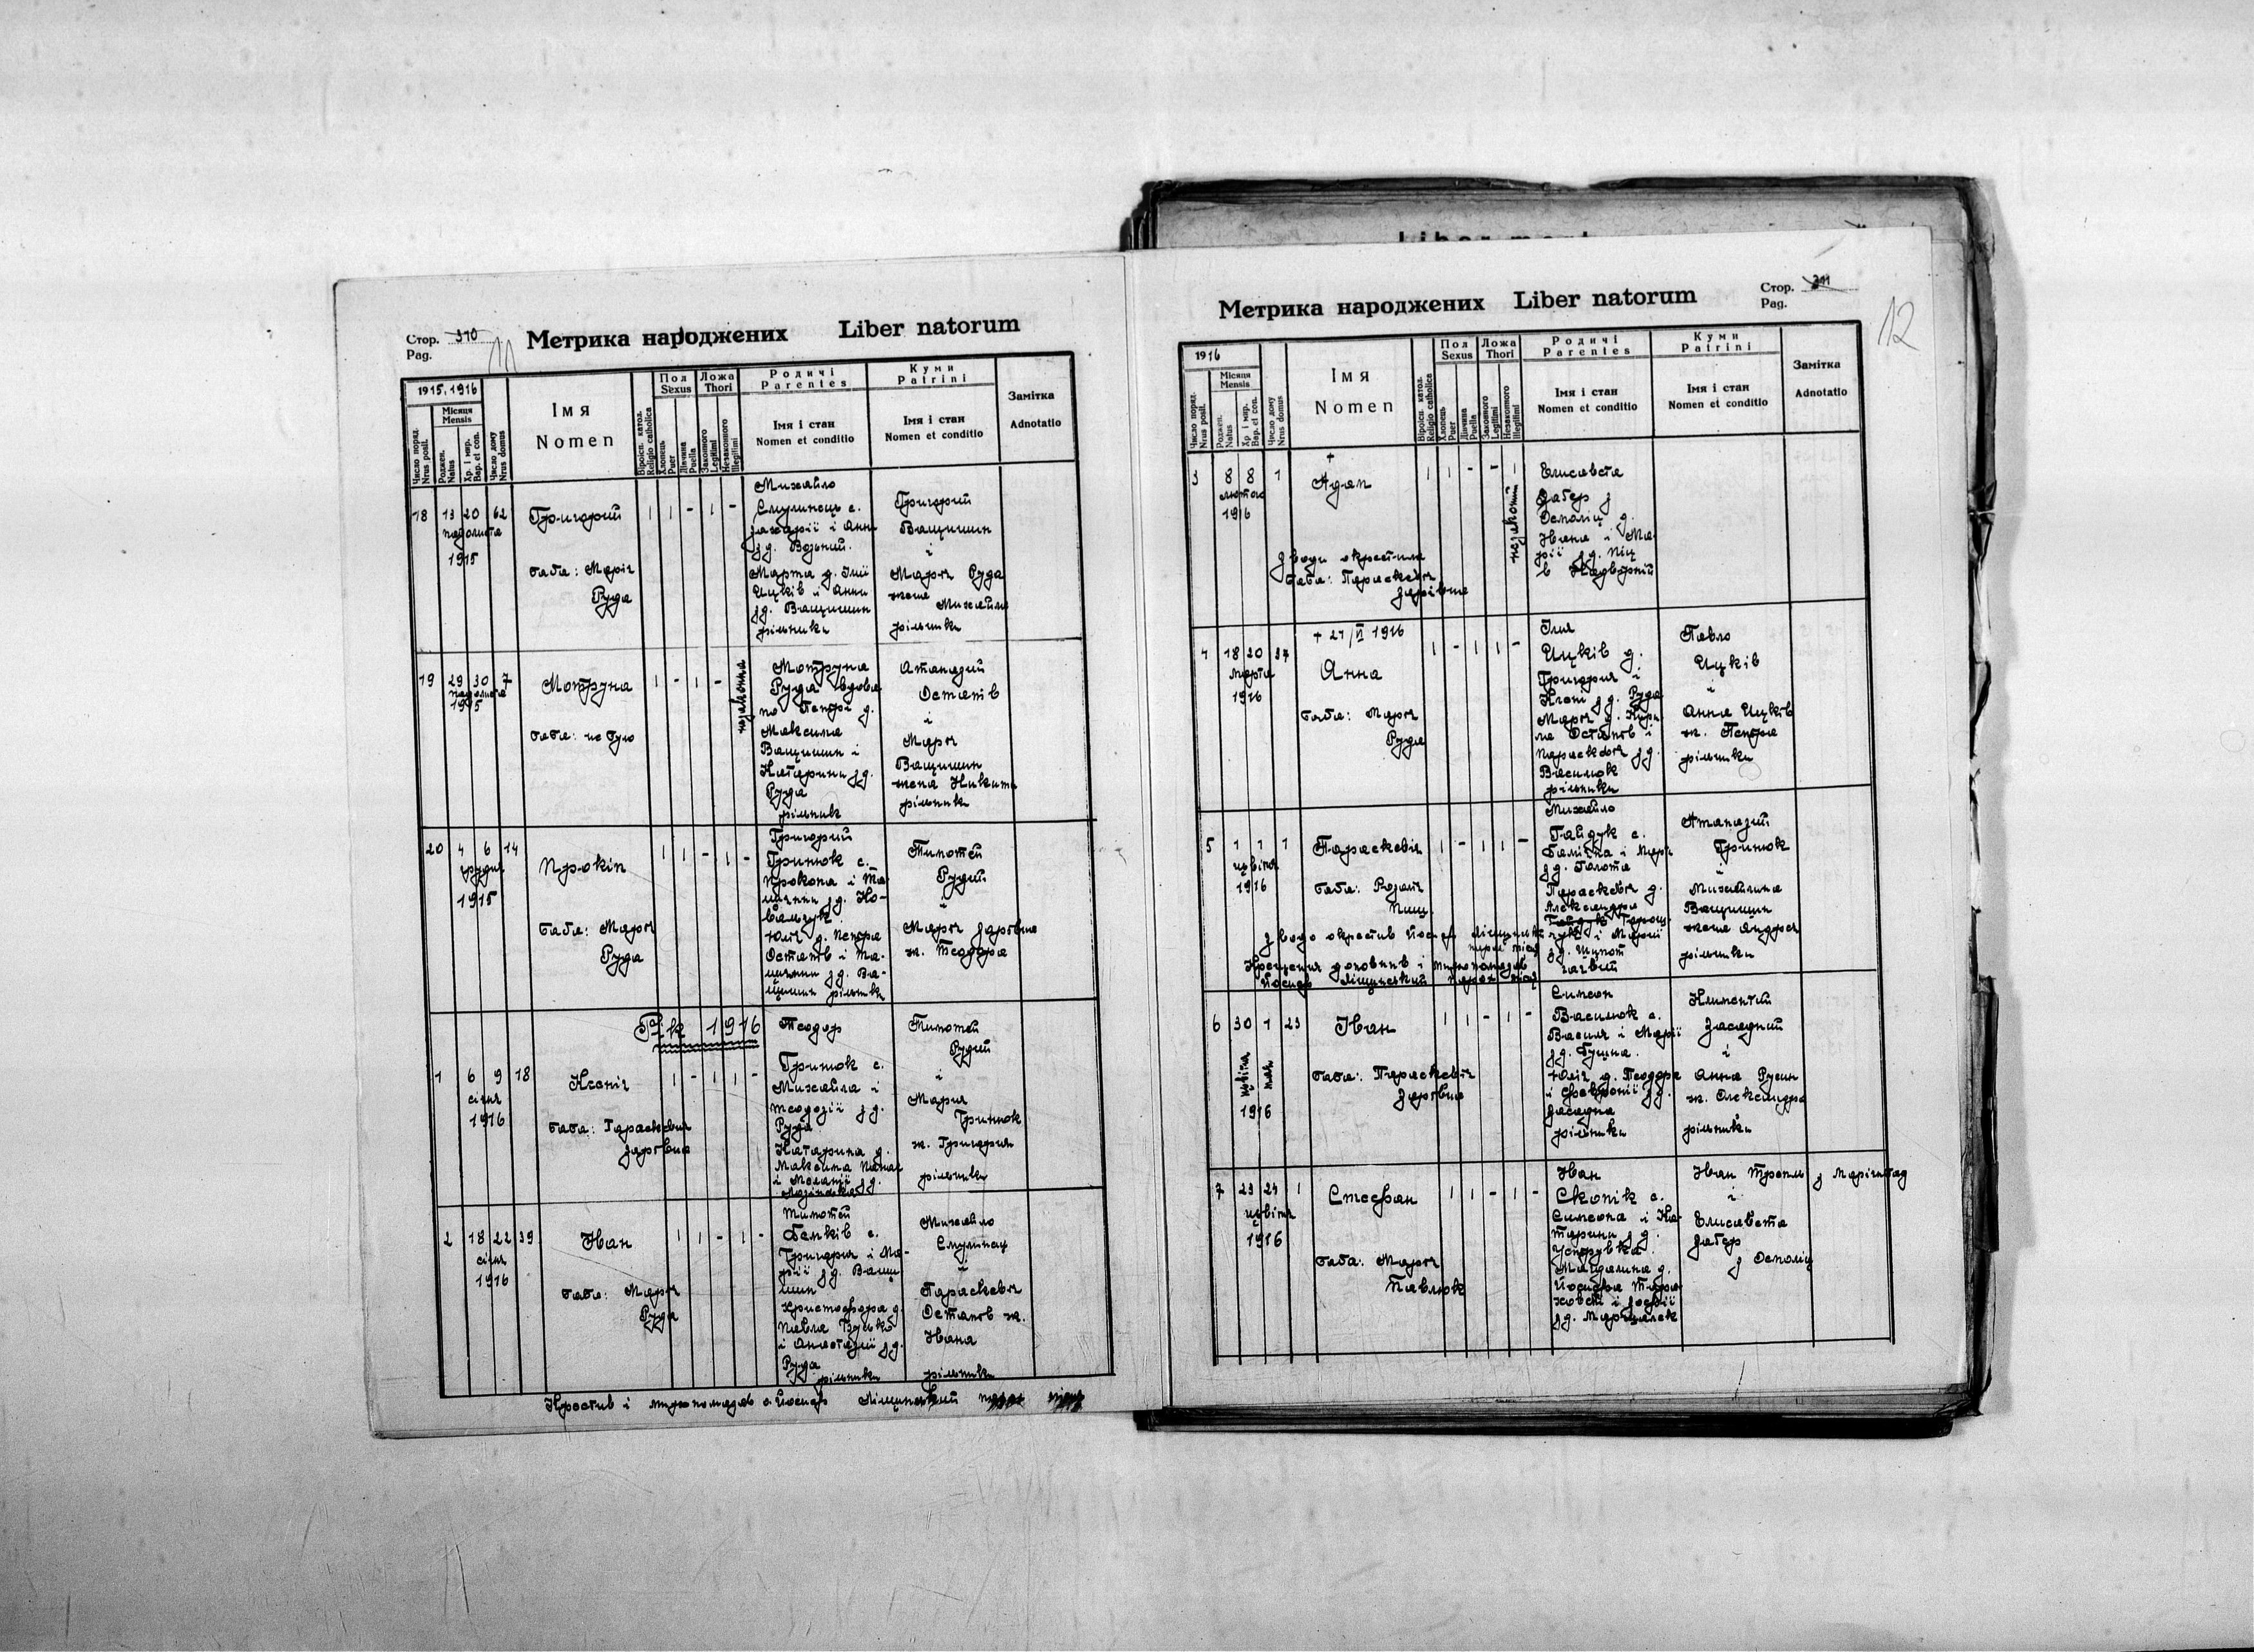 Стор. 310
Pag.
11
Метрика народжених Liber natorum
1915, 1916
Число поряд.
Nrus posit.
Місяця
Mensis
Роджен.
Natus
Хр. і мир.
Bap. et con.
Число дому
Nrus domus
Імя
Nomen
Віроісп. катол.
Religio catholica
Пол
Sexus
Хлопець
Puer
Дівчина
Puella
Ложа
Thori
Законного
Legitimi
Незаконного
Illegitimi
Родичі
Parentes
Імя і стан
Nomen et conditio
Куми
Patrini
Імя і стан
Nomen et conditio
Замітка
Adnotatio
18 13 20 62
падолиста
1915
Григорий
баба: Марія
Руда
1 1 - 1 -
Михайло
Смулинець с.
Захарії і Анни
з д. Возний.
Марта д. Ілії
Ицків і Анни
з д. Ващишин
рільники
Григорий
Ващишин
і
Марія Руда
жена
Михайла
рільники
19 29 30 7
падолиста
1915
Мотруна
баба: не було
1 - 1 -
незаконна
Мотруна
Руда вдова
по Петрі д.
Максима
Ващишин і
Катарини з д.
Руда
рільник
Атаназий
Остапів
і
Марія
Ващишин
жена Никити
рільники
20 4 6 14
грудня
1915
Прокіп
баба: Марія
Руда
1 1 - 1 -
Григорий
Гринюк с.
Прокопа і Та-
циянни з д. Ко-
вальчук.
Юлія д. Петра
Остапів і Та-
циянни з д. Ва-
щишин рільники
Тимотей
Рудий
і
Марія Зарівна
ж. Теодора
Рік 1916
1 6 9 18
січня
1916
Ксенія
баба: Параскевія
Зарівна
1 - 1 1 -
Теодор
Гринюк с.
Михайла і
Теодозії з д.
Руда
Катарина д.
Максима
і Меланії з д.
Тимотей
Рудий
і
Мария
Гринюк
ж. Григория
рільники
2 18 22 39
січня
1916
Іван
баба: Марія
Руда
1 1 - 1 -
Тимотей
Бенків с.
Григория і Ма-
рії з д. Ващи
шин
Христофора д.
Павла
і Анастазії з д.
Руда
рільники
Михайло
Смулинец
і
Параскевія
Остапів ж.
Івана
рільники
Крестив і миропомазав о Йосиф Ліщинський
Стор. 311
Pag.
12
Метрика народжених Liber natorum
1916
Число поряд.
Nrus posit.
Місяця
Mensis
Роджен.
Natus
Хр. і мир.
Bap. et con.
Число дому
Nrus domus
Імя
Nomen
Віроісп. катол.
Religio catholica
Пол
Sexus
Хлопець
Puer
Дівчина
Puella
Ложа
Thori
Законного
Legitimi
Незаконного
Illegitimi
Родичі
Parentes
Імя і стан
Nomen et conditio
Куми
Patrini
Імя і стан
Nomen et conditio
Замітка
Adnotatio
3 8 8 1
лютого
1916
+
Адам
з води окрестила
баба: Параскевія
Зарівна
1 1 - - 1
незаконний
Елисавета
Забер з
Осмоліц д.
Івана і Ма-
рії з д. Піц
в Надвірній
4 18 20 37
марта
1916
+ 21/VI 1916
Анна
баба: Марія
Руда
1 - 1 1 -
Ілия
Ицків д.
Григория і
Ксені з д. Руда
Марія д. Кири-
ла Остапів і
Параскевія з д.
Василюк
рільники
Павло
Ицків
і
Анна Ицків
ж. Петра
рільники
5 1 1 1
цвітня
1916
Параскевія
баба: Розалія
Пищ.
з води окрестив Йосиф Ліщинський
Крещения доповнив і миропомазав
Йосиф Ліщинський
1 - 1 1 -
Михайло
Гайдук с.
і Марії
з д. Голота
Параскевія д.
Александра
Гайдук
і Марії
з д.
Атаназий
Гринюк
і
Михайлина
Ващишин
жена Андрея
рільники
6 30 1 23
цвітня мая
1916
Іван
баба: Параскевія
Зарівна
1 1 - 1 -
Симеон
Василюк с.
Василя і Марії
з д. Гушна.
Юлія д. Теодора
і Февронії з д.
Засадна
рільники
Климентий
Засадний
і
Анна Русин
ж. Олександра
рільники
7 23 24 1
цвітня
1916
Стефан
баба: Марія
Павлюк
1 1 - 1 -
Іван
Скопік с.
Симеона і Ка-
тарини з д.
Магдалина д.
Йосифа
і Зофії
з д. Марцялек
Іван Трепль з Марієнбад
і
Елисавета
Забер
з Осмоліц